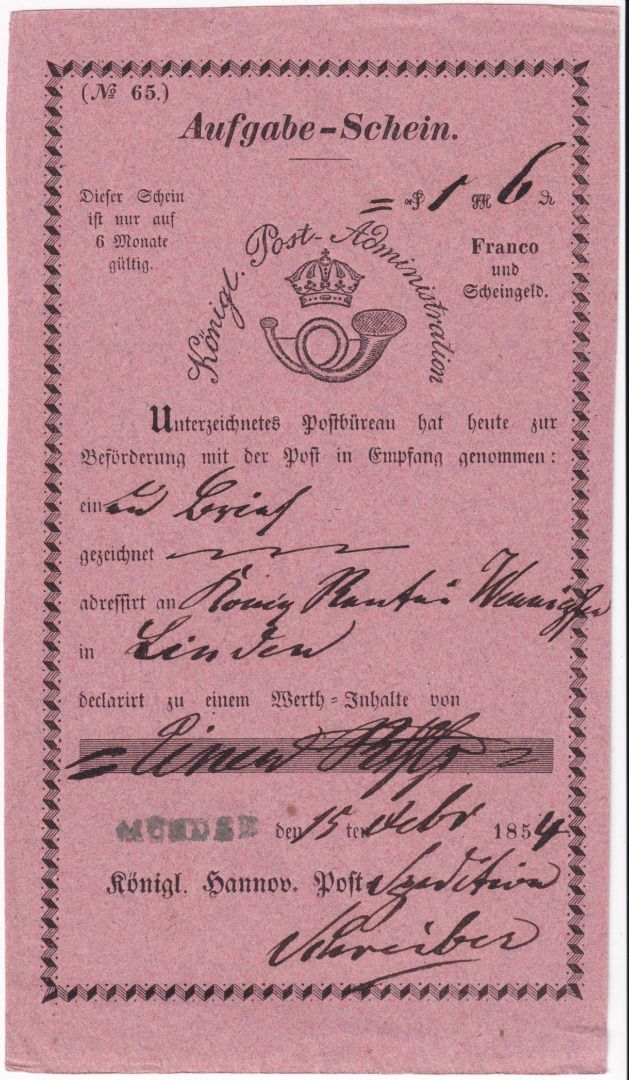 (№ 65.)
Aufgabe-Schein.
Dieser Schein
ist nur auf
6 Monate
gültig.
= 1 6
Franco
und
Scheingeld.
Königl. Post-Administration
Unterzeichnetes Postbüreau hat heute zur
Beförderung mit der Post in Empfang genommen:
ein Brief
gezeichnet
adressirt an König
in Linden
declarirt zu einem Werth-Inhalte von
= Einen
MÜNDER den 15 ten 1854
Königl. Hannov. Post Spedition
Schreiber